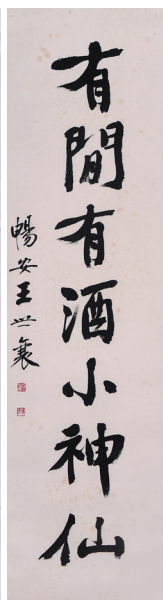 有閒有酒小神仙
暢安王世襄